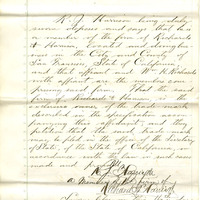 R. G. Harrison being duly
sworn deposes and says that he is
a member of the firm of Richards
& Harrison, located and doing busi-
ness in the City and County of
San Francisco, State of California,
and that affiant and Wm. K. Richards
with affiant are the members com-
prising said firm. That the said
firm of Richards & Harrison, is the
exclusive owner of the trade-mark
described in the specification accom-
panying this affidavit; and they
petition that the said trade-mark
be filed in the office of the Secretary
of State, of the State of California,
in accordance with the law in such case
made and provided.
a Member of the firm of
Richards & Harrison